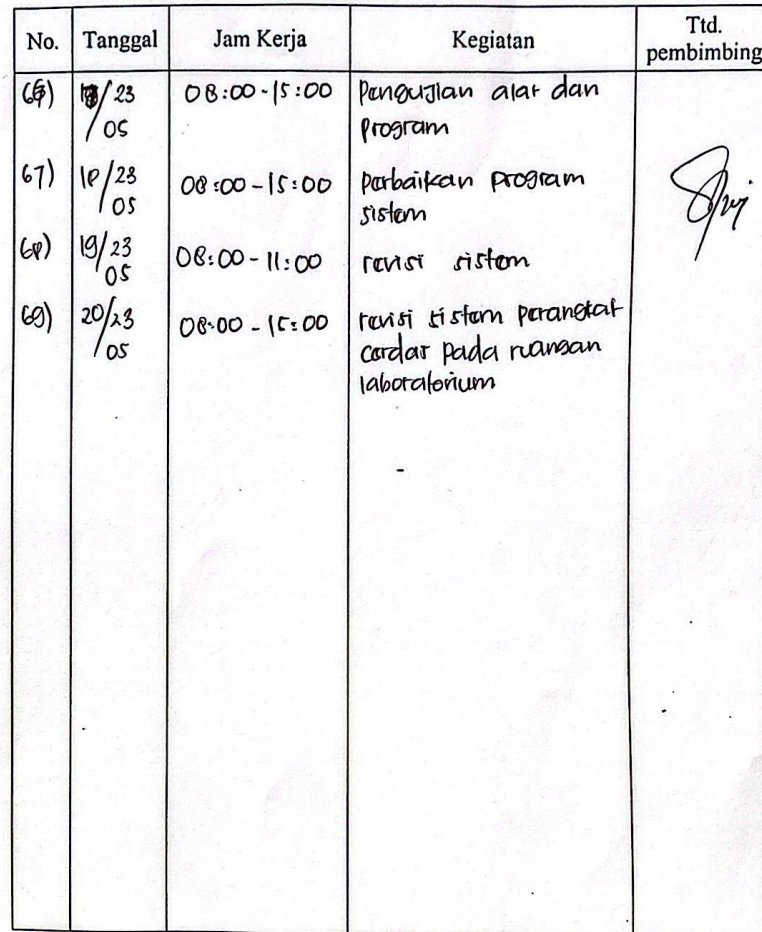 No. Tanggal Jam Kerja Kegiatan Ttd. pembimbing
66) /23 08:00-15:00 Pengujian alat dan
/05 program
67) 18/23 08:00-15:00 perbaikan program
/05 sistem
68) 19/23 08:00-11:00 revisi sistem
05
69) 20/23 08:00-15:00 revisi sistem perangkat
/05 cerdas pada ruangan
laboratorium